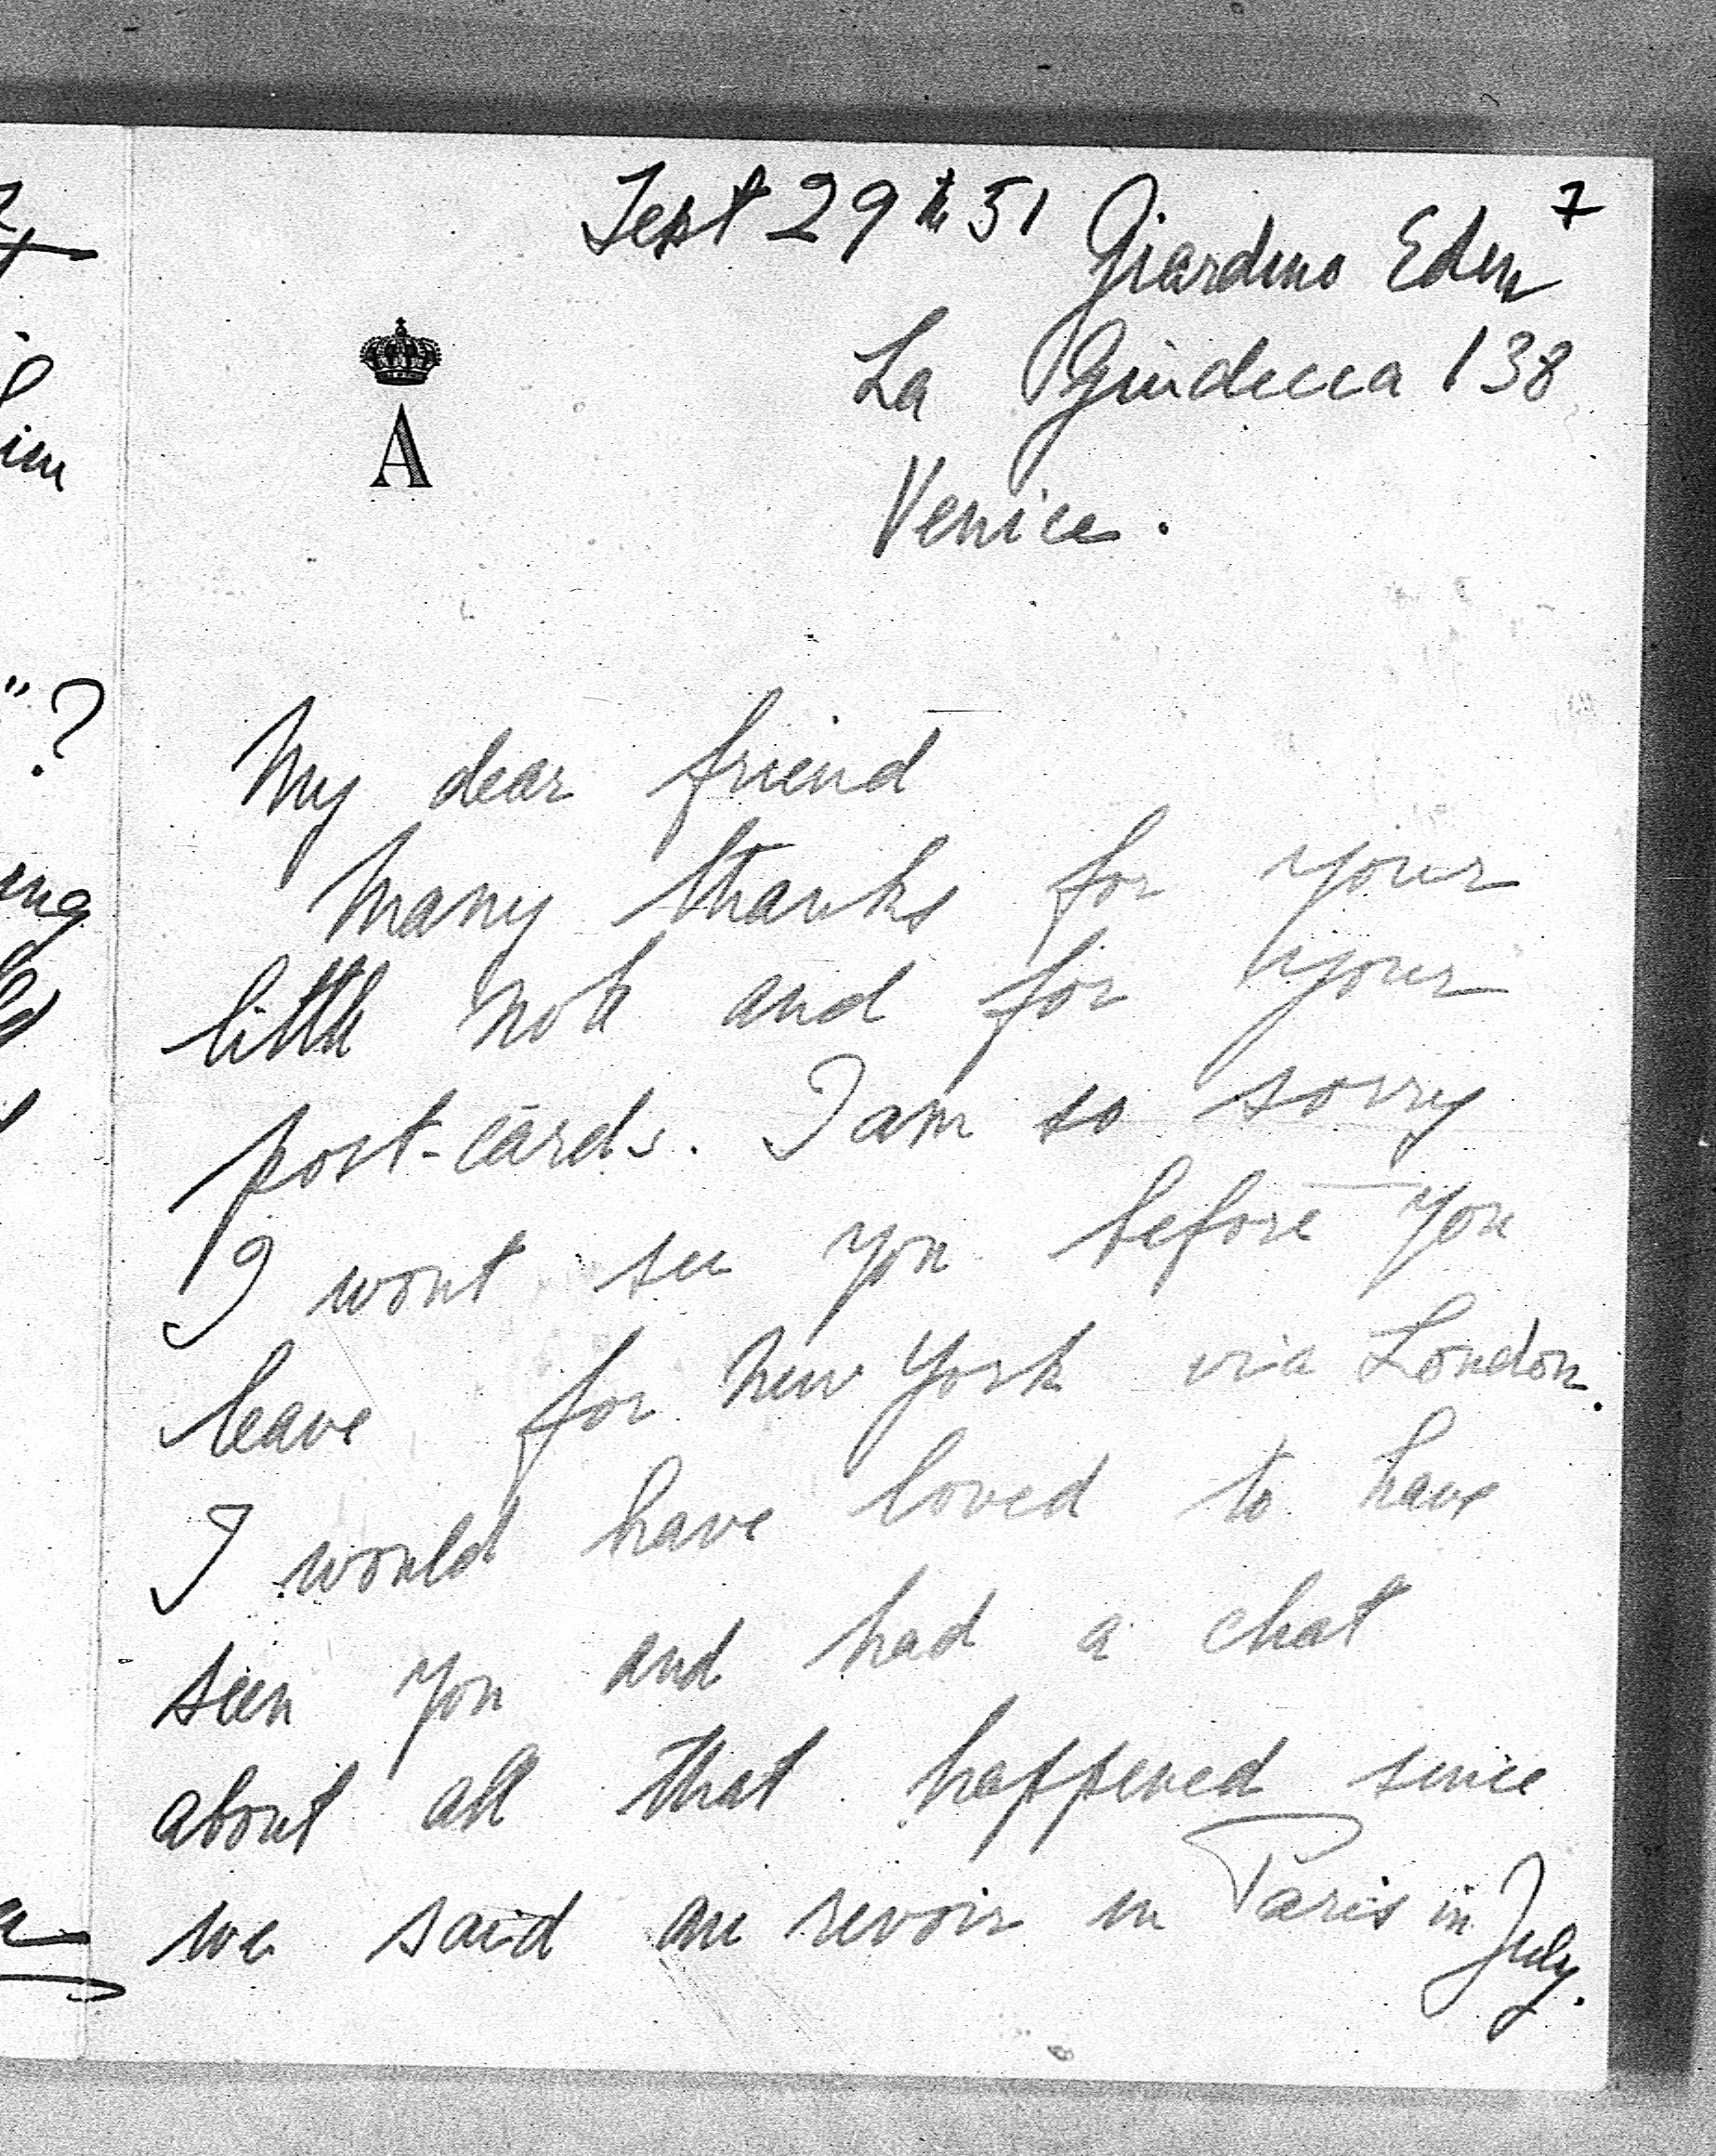 7
Sept 29th 51 Giardino Eden
La Giudecca 138
Venice.
A
My dear friend
Many thanks for your
little note and for your
post-cards. I am so sorry
I wont see you before you
leave for New York via London.
I would have loved to have
seen you and had a chat
about all that happened since
we said au revoir in Paris in July.